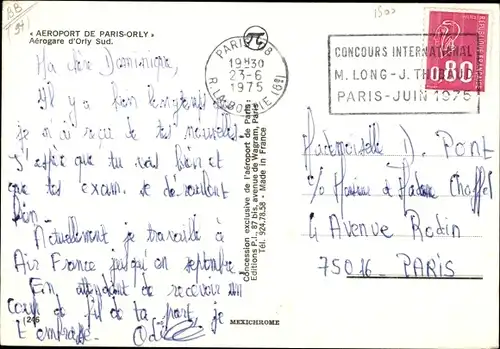 BB
94
1500
« AEROPORT DE PARIS-ORLY »
Aérogare d'Orly Sud.
Ma chère Dominique,
Il y a bien longtemps que
je n'ai reçu de tes nouvelles.
J'espère que tu vas bien et
que tes exam. se déroulent
bien.
Actuellement je travaille à
Air France jusqu'en septembre.
En attendant de recevoir un
coup de fil de ta part, je
t'embrasse. Odile
246
MEXICHROME
Concession exclusive de l'aéroport de Paris:
Editions P.I., 87 bis, avenue de Wagram, Paris
Tél. 924.78.58 - Made in France
PARIS 8
19H30
23-6
1975
R. LA BOETIE (8e)
CONCOURS INTERNATIONAL
M. LONG - J. THIBAUD
PARIS - JUIN 1975
0,80
Mademoiselle D PONT
c/o Monsieur et Madame Chaffel
4 Avenue Rodin
75016 - PARIS